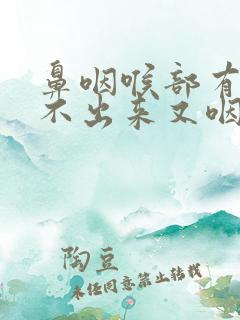 鼻咽喉部有
不出来又咽
陶豆
未经同意禁止转载